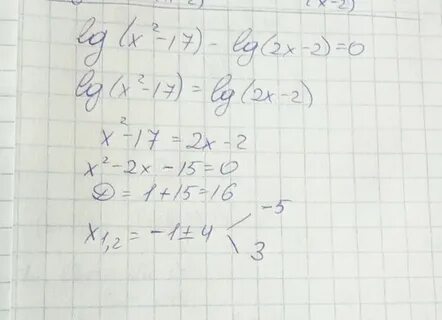 lg(x²-17) - lg(2x-2)=0
lg(x²-17) = lg(2x-2)
x²-17 = 2x-2
x²-2x-15=0
D = 1+15=16
x₁,₂ = -1±4
-5
3